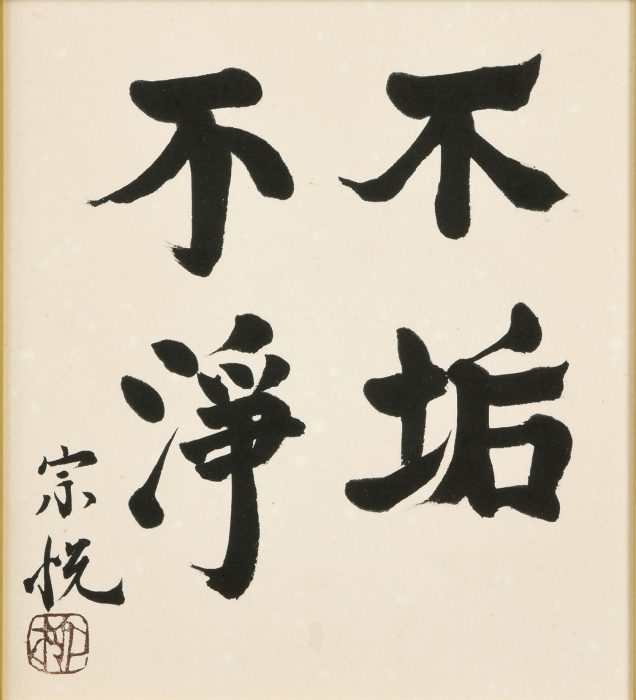 不垢
不淨
宗悦
柳